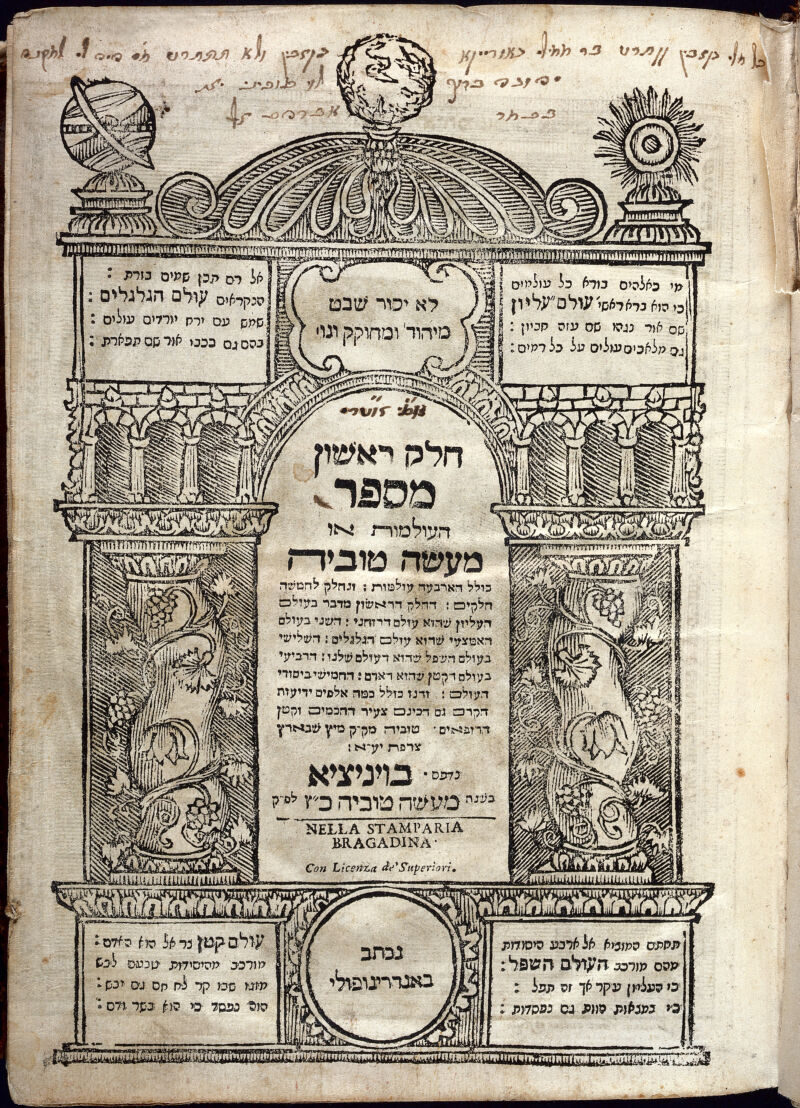 לא יכור שבט
מיהוד' ומחוקק וגוי'
מי כאלהים בורא כל עולמים
כי הוא ברא ראשי עולם עליון
שם אור נגהו שם עוזה חביון :
גם מלאכים עולים על כל רמים :
אל רם תכן שמים בזרת :
הנקראים עולם הגלגלים :
שמש עם ירח יורדים עולים :
בהם גם בכבו אור שם תפארת :
חלק ראשון
מספר
העולמות או
מעשה טוביה
כולל הארבעה עולמות : ונחלק לחמשה
חלקים : החלק הראשון מדבר בעולם
העליון שהוא עולם הרוחני : השני בעולם
האמצעי שהוא עולם הגלגלים : השלישי
בעולם השפל שהוא העולם שלנו : הרביעי
בעולם הקטן שהוא האדם : החמישי ביסודי
העולם : וזה כולל כמה אלפים ידיעות
הקרם גם הכינם צעיר החכמים וקטן
הרופאים טוביה מק"ק מיץ שבארץ
צרפת יע"א :
נדפס בויניציא
בשנת מעשה טוביה כ"ץ לפ"ק
NELLA STAMPARIA
BRAGADINA
Con Licenza de' Superiori.
נכתב
באנדרינופולי
תחתם המציא אל ארבע היסודות
מהם מורכב העולם השפל :
כי העליון עקר אך זה תפל :
כי במצאות הוות גם נפסדות :
עולם קטן ברא אל הוא האדם :
מורכב מהיסודות טבעם לבש
מזגו שבו קר לח חם גם יבש :
הוה נפסד כי הוא בשר ודם :